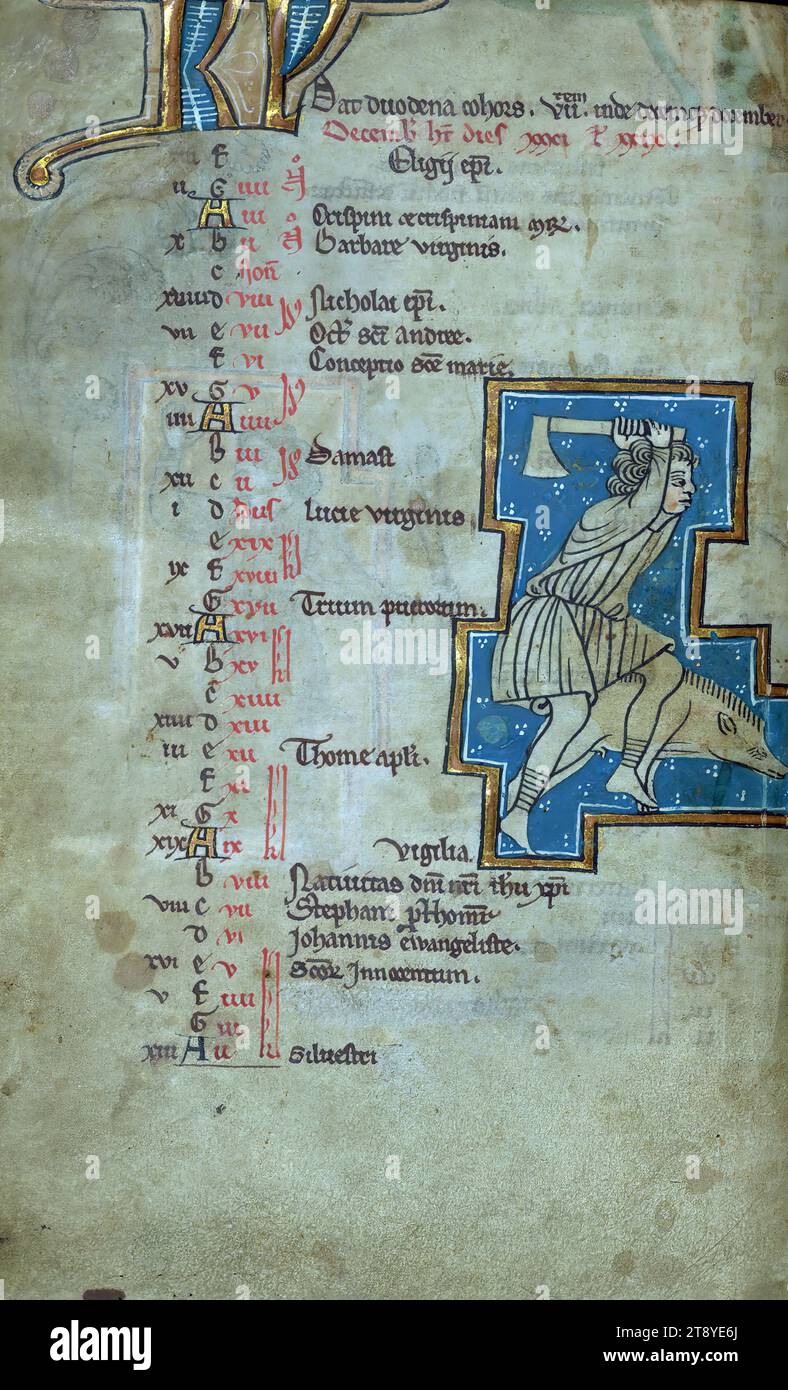 KL
Dat duodena cohors. VII.tem inde decemq; december
Decemb' ht dies xxxi
f Eligij epi.
ii G iiii
A iii Crispini & crispiniani mr.
x b ii Barbare virginis.
c non
xviii d viii Nicholai epi.
vii e vii Oct' sci andree.
f vi Conceptio sce marie.
xv G v
iiii A iiii
b iii Damasi
xii c ii
i d idus Lucie virginis
e xix
ix f xviii
G xvii Trium puerorum.
xvii A xvi
v b xv
c xiiii
xiiii d xiii
iii e xii Thome apli.
f xi
xi G x
xix A ix Vigilia.
b viii Nativitas dni nri ihu xpi
viii c vii Stephani prthom
d vi Johannis evangeliste.
xvi e v Scor innocentum.
v f iiii
G iii
xiii A ii Silvestri
alamy
Image ID: 2T8YE6J
www.alamy.com